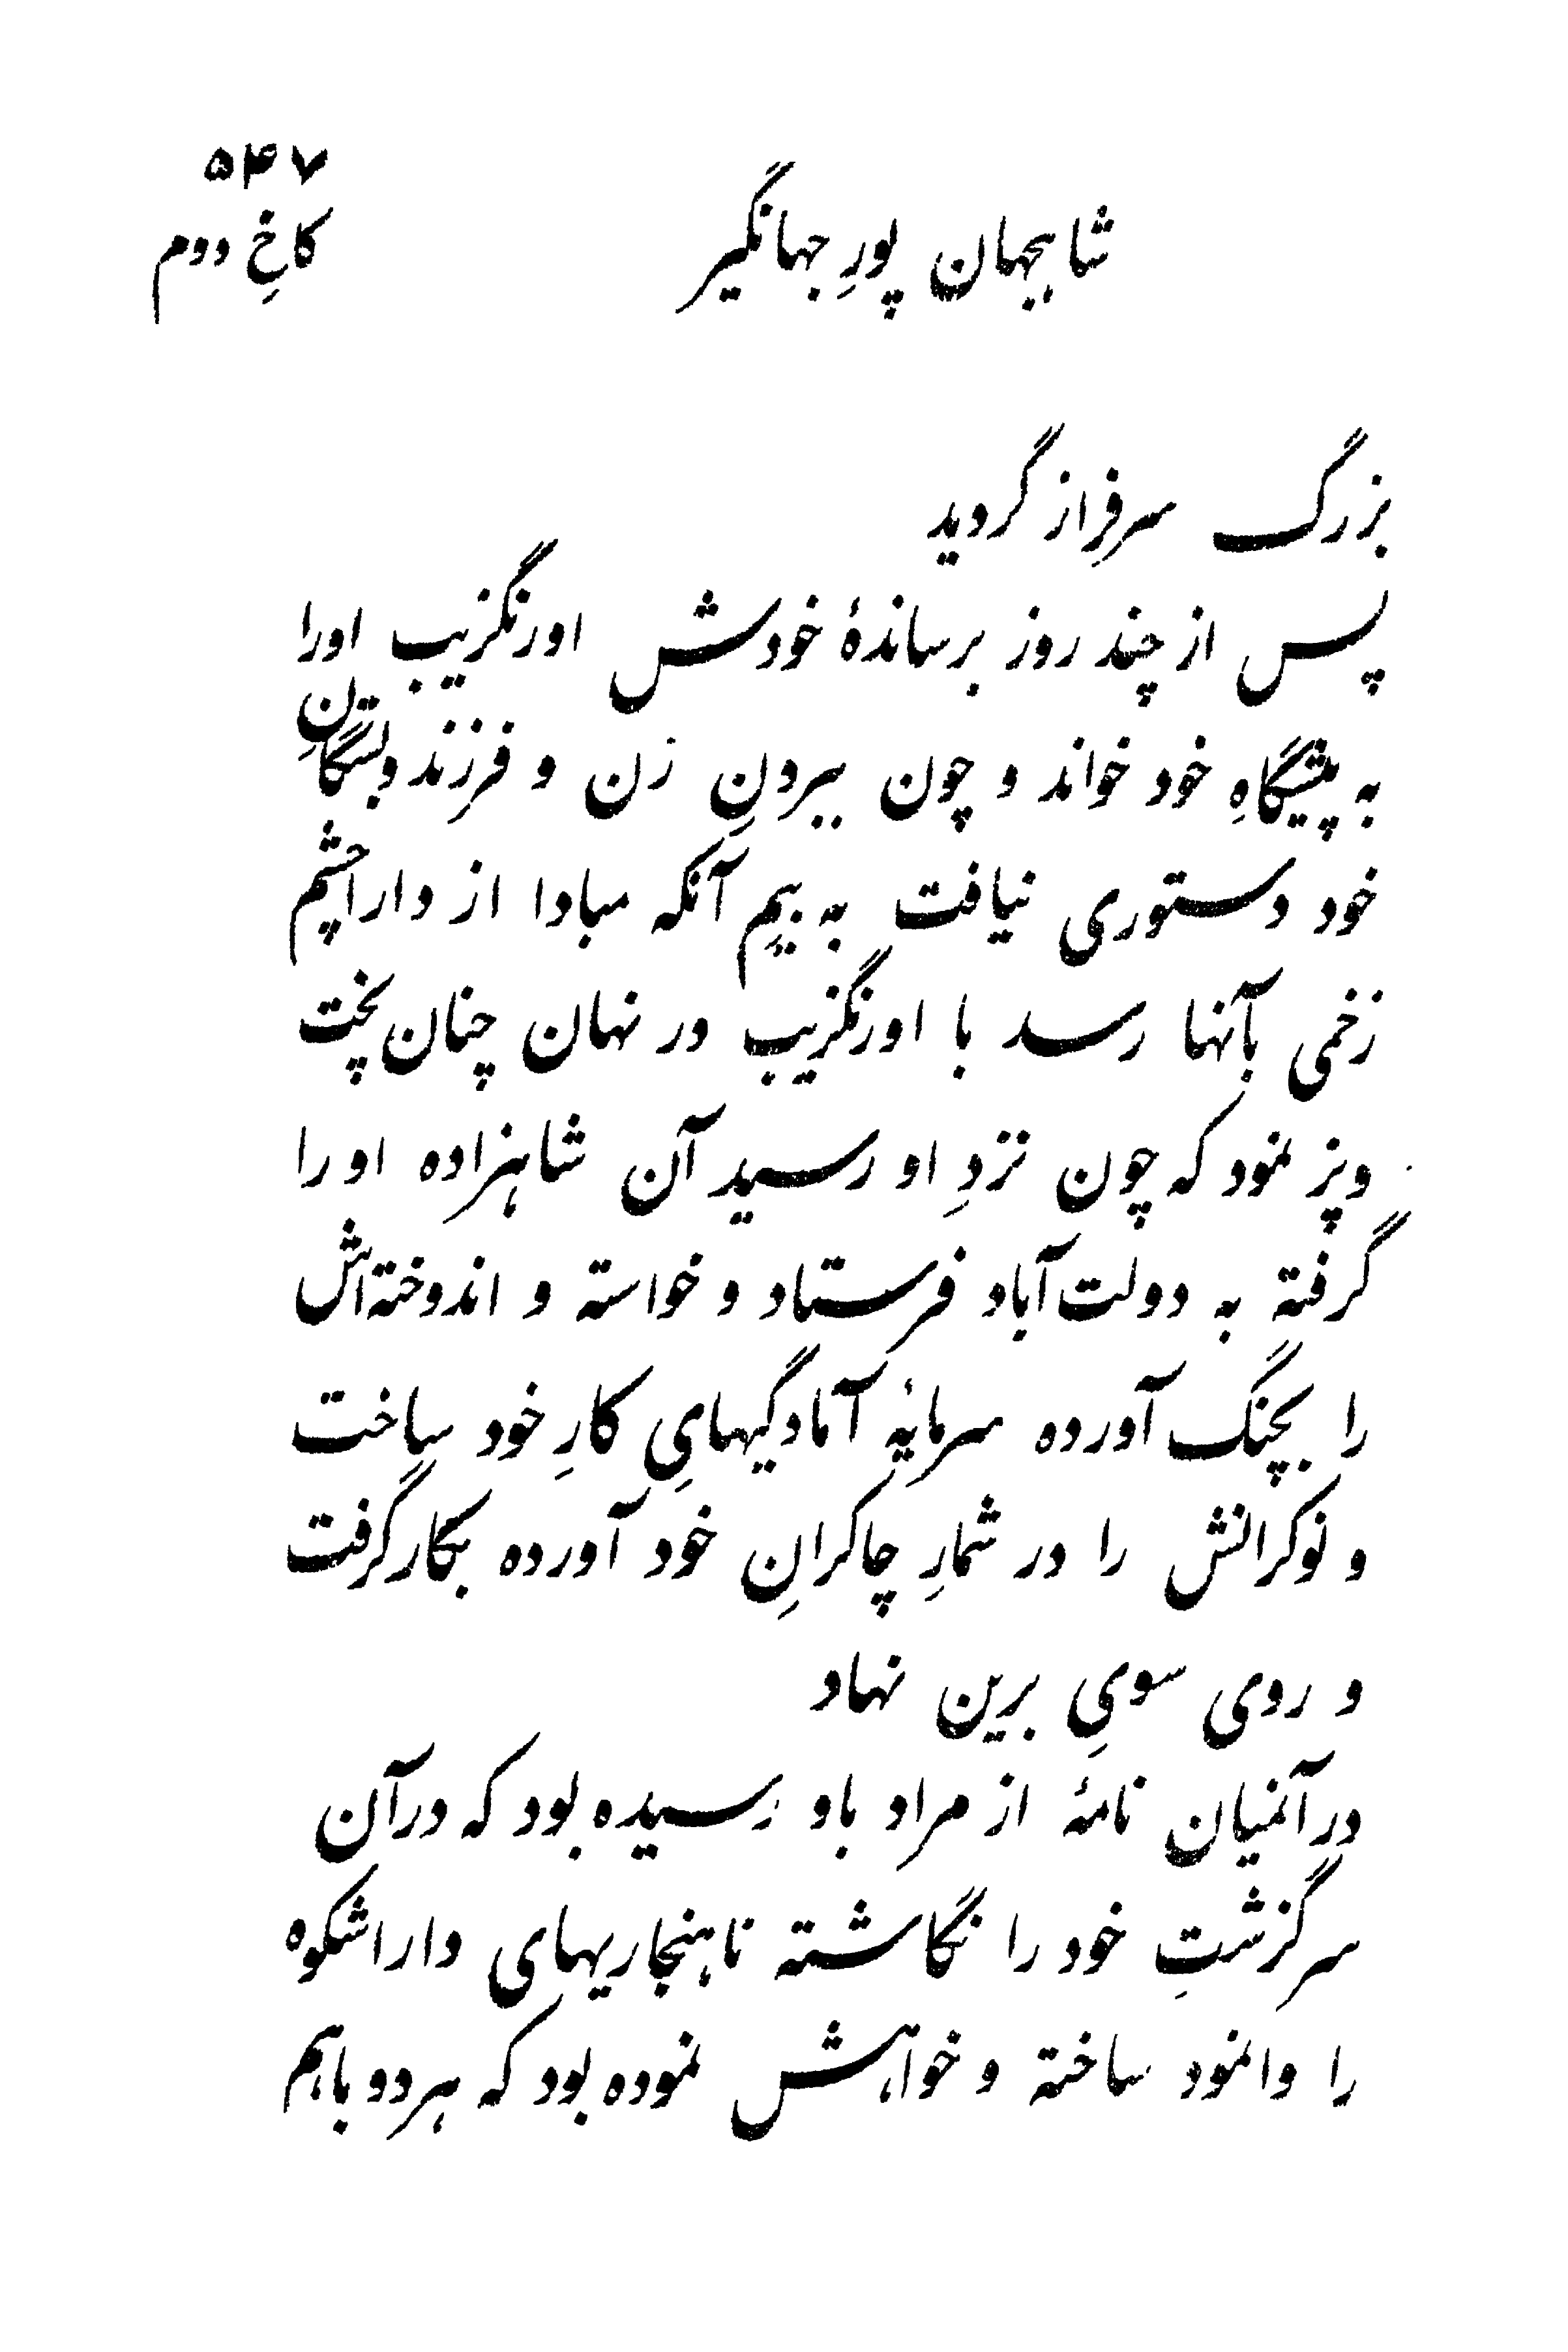 ۵۴۷
شاهجهان پورِ جهانگیر
کاخِ دوم
بزرگ سرفراز گردید
پس از چند روز برساندهٔ خودش اورنگزیب اورا
به پیشگاهِ خود خواند و چون ببردنِ زن و فرزند و بستگانِ
خود دستوری نیافت به بیمِ آنکه مبادا از دارا چشم
زخمی بآنها رسد با اورنگزیب در نهان چنان پخت
و پز نمود که چون نزدِ او رسید آن شاهزاده او را
گرفته به دولت آباد فرستاد و خواسته و اندوخته‌اش
را بچنگ آورده سرمایهٔ آمادگیهایِ کارِ خود ساخت
و نوکرانش را در شمارِ چاکرانِ خود آورده بکار گرفت
و روی سویِ برین نهاد
در آنمیان نامهٔ از مراد باو رسیده بود که در آن
سرگزشتِ خود را نگاشته ناهنجاریهای داراشکوه
را وانمود ساخته و خواهش نموده بود که هر دو باهم